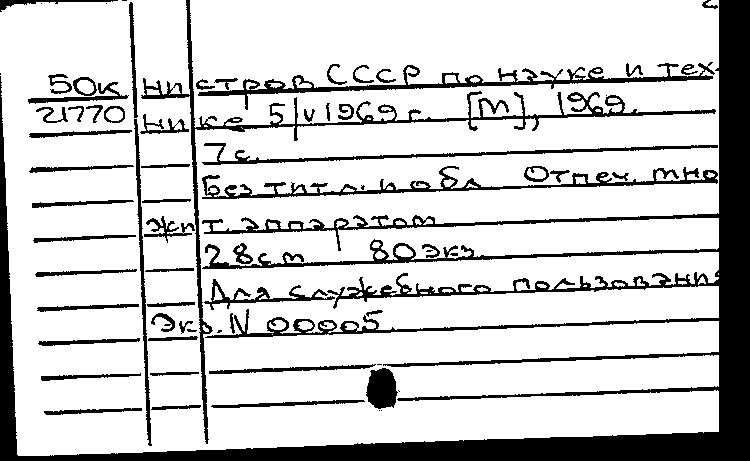 50к нистров СССР по науке и тех-
21770 нике 5/V 1969 г. [М], 1969.
7 с.
Без тит. л. и обл. Отпеч. мно
жит. аппаратом
28 см 80 экз.
Для служебного пользования
Экз. N 00005.